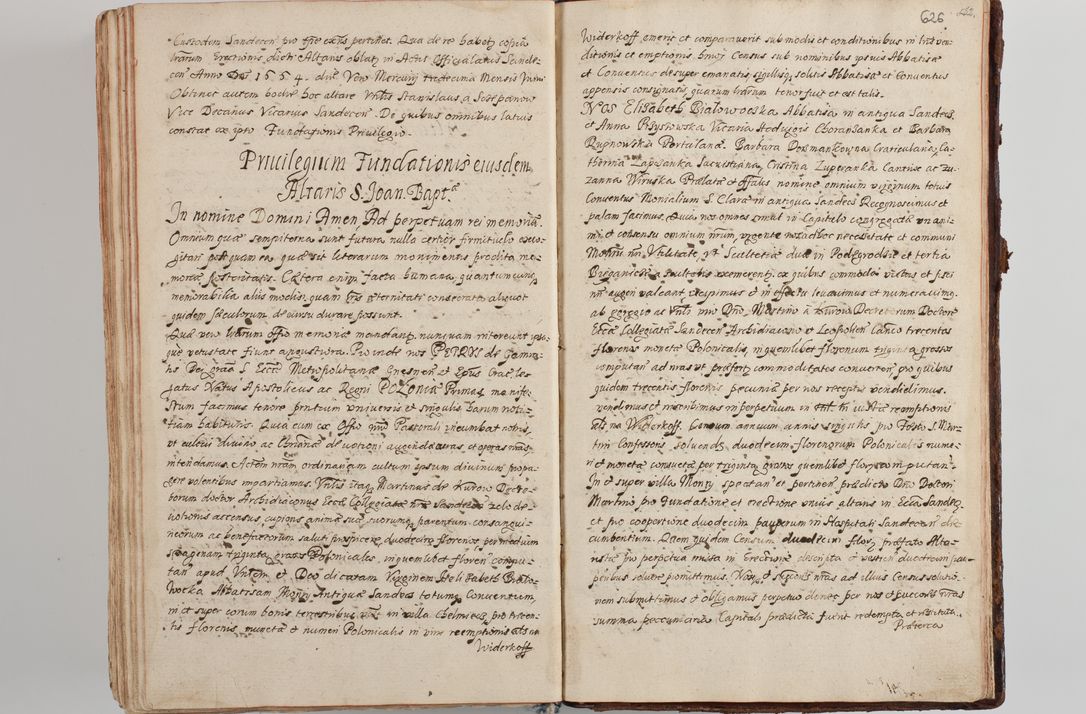 Custodem Sandecen pro tpre exñs pertinet. Qua de re habetz copia
lrarum Erectionis dicti Altaris oblatz in Actis Officialatus Sande-
cen Anno Dni 1554. die Vero Mercurij tredecima Mensis
Obtinet autem hodie hoc altare Vnblis Stanislaus a Sczepanow
Vice Decanus Vicarius Sandecen. De quibus omnibus latius
constat ex ipso Fundationis Priuilegio.
Priuilegium Fundationis eiusdem
Altaris S. Joan. Bapt.
In nomine Domini Amen, Ad perpetuam rei memoriã.
Omnium quæ sempiterna sunt futura nulla certior firmitudo exco-
gitari potest quam ea, quæ sit literarum monimentis prodita me-
moriæ posteritatis. Cætera enim facta humana quantumcunq
memorabilia alijs modis, quam his æternitati consecrata aliquot
quidem sæculorum decursu durare possunt.
Quæ vero lrarum offo memoriæ mandantz nunquam intereunt ipsa-
que vetustate fiunt angustiora. Proinde nos PETRVS de Gamra-
tis Dei graã S. Eccæ Metropolitanæ Gnesnen et Epus Crac. le-
gatus Natus Apostolicus ac Regni POLONIÆ Primas manife-
stum facimus tenore pntium vniuersis et singulis harum noti-
tiam habituris. Quia cum ex Offo nro Pastorali incumbat nobis,
vt cultui diuino ac Chrianæ deuotioni augendæ curas et operas nras
intendamus. Actem nram ordinariam cultum ipsum diuinum propa-
gare volentibus impartiamus. Vnblis itaq Martinus de Kurow Decre-
torum doctor Archidiaconus Eccæ Collegiatæ nræ Sandecen zelo de-
uotionis accensus, cupiens animæ suæ suorumq parentum consangui-
neorum ac benefactorum saluti prospicere duodecim florenos per medium
sexagenam triginta grossos Polonicales in quemlibet florenũ compu-
tan apud Vnlem et Deo dicatam Virginem Helisabeth Bialo-
woska Abbatissam Monrij Antiquæ Sandecz totumq Conuentum,
in et super eorum bonis terrestribus vnt in villa Chelmiec, pro trecen-
tis florenis, monetæ et numeri Polonicalis in vim reemptionis als na
Widerkoff

626
Widerkoff emerit et comparauerit sub modis et conditionibus in lris ven-
ditionis et emptionis huiq Census sub nominibus ipsius Abbatissæ
et Conuentus desuper emanatis, sigillisq solitis Abbatissæ et Conuentus
appensis consignatis, quarum lrarum tenor fuit et est talis.
Nos Elisabeth Bialowoeska Abbatissa in antiqua Sandecz
et Anna Rzyszowska Vicaria Heduigis Oboranska et Barbara
Rupnowska Portulana. Barbara Dormankowna Craticulana, Ca-
therina Lapszanka Sacristiana, Cristina Zuperanka Cantrix ac Zu-
zanna Wiruska Prælatæ et offales nomine omnium virginum totius
Conuentus Monialium S. Claræ in antiqua Sandecz Recognoscimus et
palam facimus. Quia nos omnes simul in Capitulo congregatæ vnani-
mi et consensu omnium nrum, vrgente nos ad hoc necessitate et communi
Monrij nri Vtilitate, vt Scultetiæ duæ in Podegrodzie et tertia
Bieganicka a scultetis exemerentz, ex quibus commoda victus et
nri augeri valeant, recepimus et in effectu leuauimus et numerauimq
ab egregio ac Vnbli viro Dño Martino à Kurow Decretorum Doctore
Eccæ Collegiatæ Sandecen Archidiacono et Leopolien Canco trecentos
florenos monetæ Polonicalis, in quemlibet florenum triginta grossos
computan ad nras vt præfertz commoditates conuerten, pro quibus
quidem trecentis florenis pecuniæ per nos receptis vendidimus.
vendimus et rescribimus in perpetuum in reemptionis
als na Widerkoff. Censum annuum annis singulis pro Festo S. Mar-
tini Confessoris soluendz, duodecim florenorum Polonicalis nume-
ri et monetæ consuetæ per triginta grossos quemlibet florenum putan
In et super villa Monrij spectan et pertinen prædicto Dño Doctori
Martino pro fundatione et erectione vnius altaris in Ecca Sandecz
et pro coopertione duodecim pauperum in Hospitali Sandecen de-
cumbentium. Quem quidem Censum duodecim flor. præfato Alta-
ristæ pro perpetua missa in Erectione descripta et vestien duodecim pau-
peribus soluere promittimus. Nos et successores nras ad illius Census solutio-
nem submittimus et obligamus perpetuo donec per nos et successores nras
summa pecuniaria Capitalis prædicta fuerit redempta et restituta.
Præterea